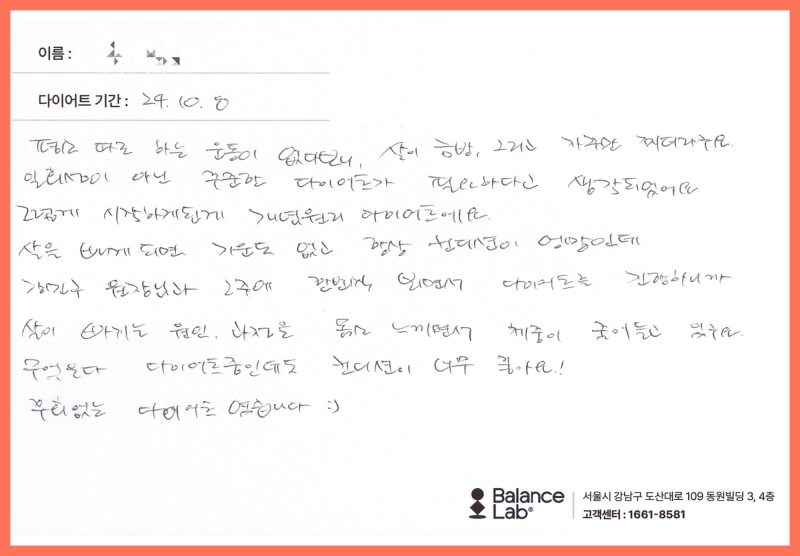 이름 :
다이어트 기간 : 24. 10. 8
평소 따로 하는 운동이 없다보니, 살이 금방, 그리고 자주 찌더라구요.
일회성이 아닌 꾸준한 다이어트가 필요하다고 생각되었어요
그렇게 시작하게된게 개년원리 다이어트에요.
살을 빼게 되면 기운도 없고 항상 컨디션이 엉망인데
원장님과 2주에 한번씩 뵈면서 다이어트를 진행하니까
살이 빠지는 원인, 과정을 몸소 느끼면서 체중이 줄어들고 있구요.
무엇보다 다이어트중인데도 컨디션이 너무 좋아요!
후회없는 다이어트 였습니다 :)
Balance Lab®
서울시 강남구 도산대로 109 동원빌딩 3, 4층
고객센터 : 1661-8581